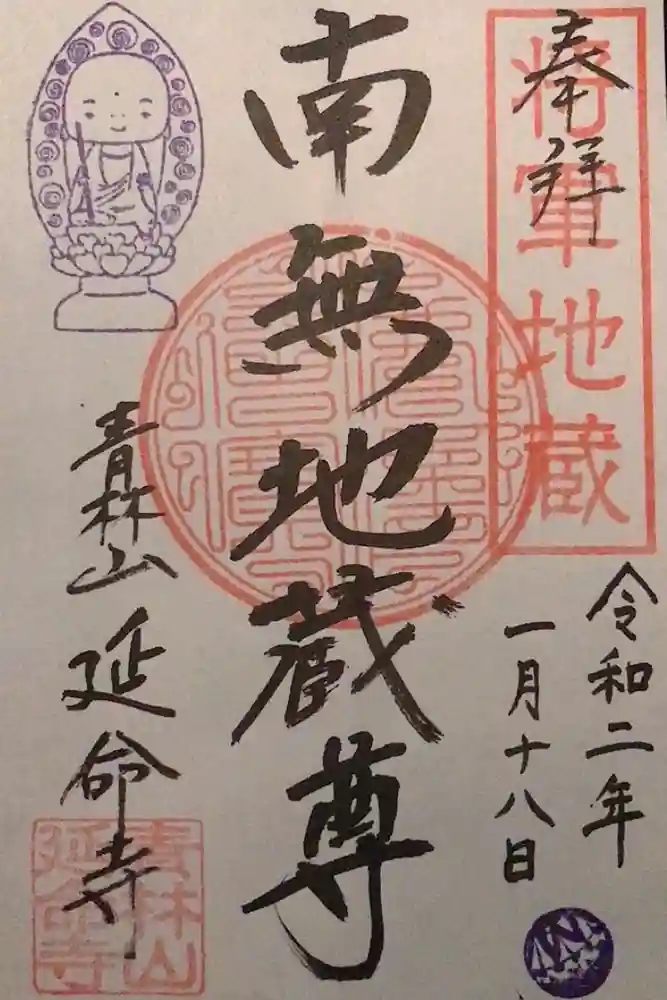 奉拝
将軍地蔵
令和二年
一月十八日
南無地蔵尊
青林山延命寺
青林山
延命寺